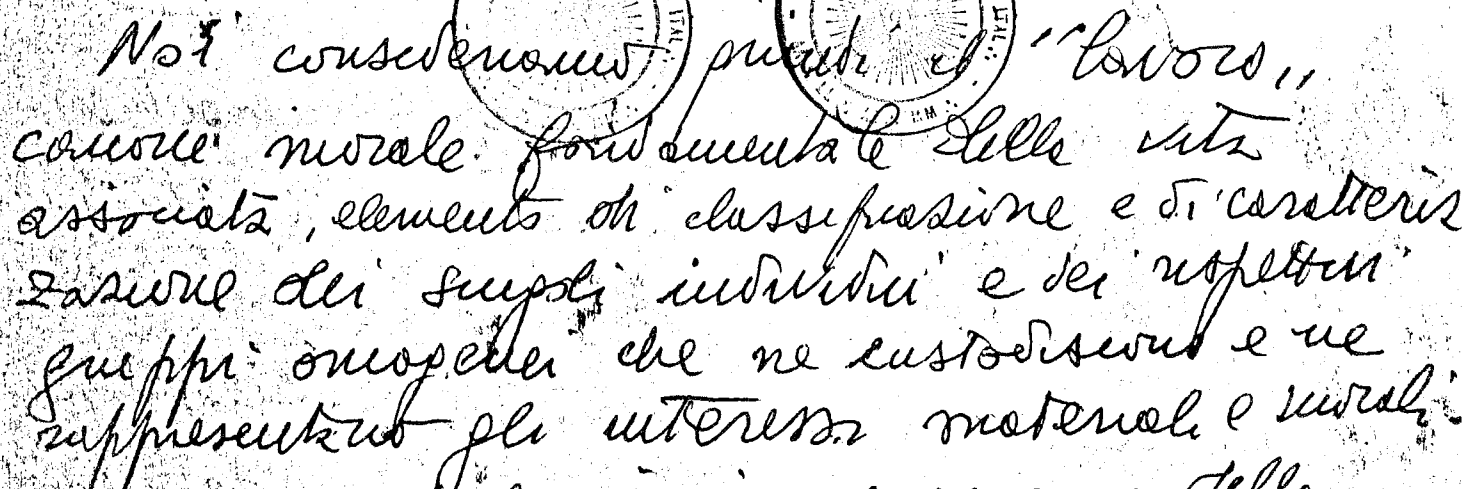 Noi consideriamo quindi il "lavoro"
canone morale fondamentale della vita
associata, elemento di classificazione e di caratteriz
zazione dei singoli individui e dei rispettivi
gruppi omogenei che ne custodiscono e ne
rappresentano gli interessi materiali e morali.
ITAL
ITAL
della